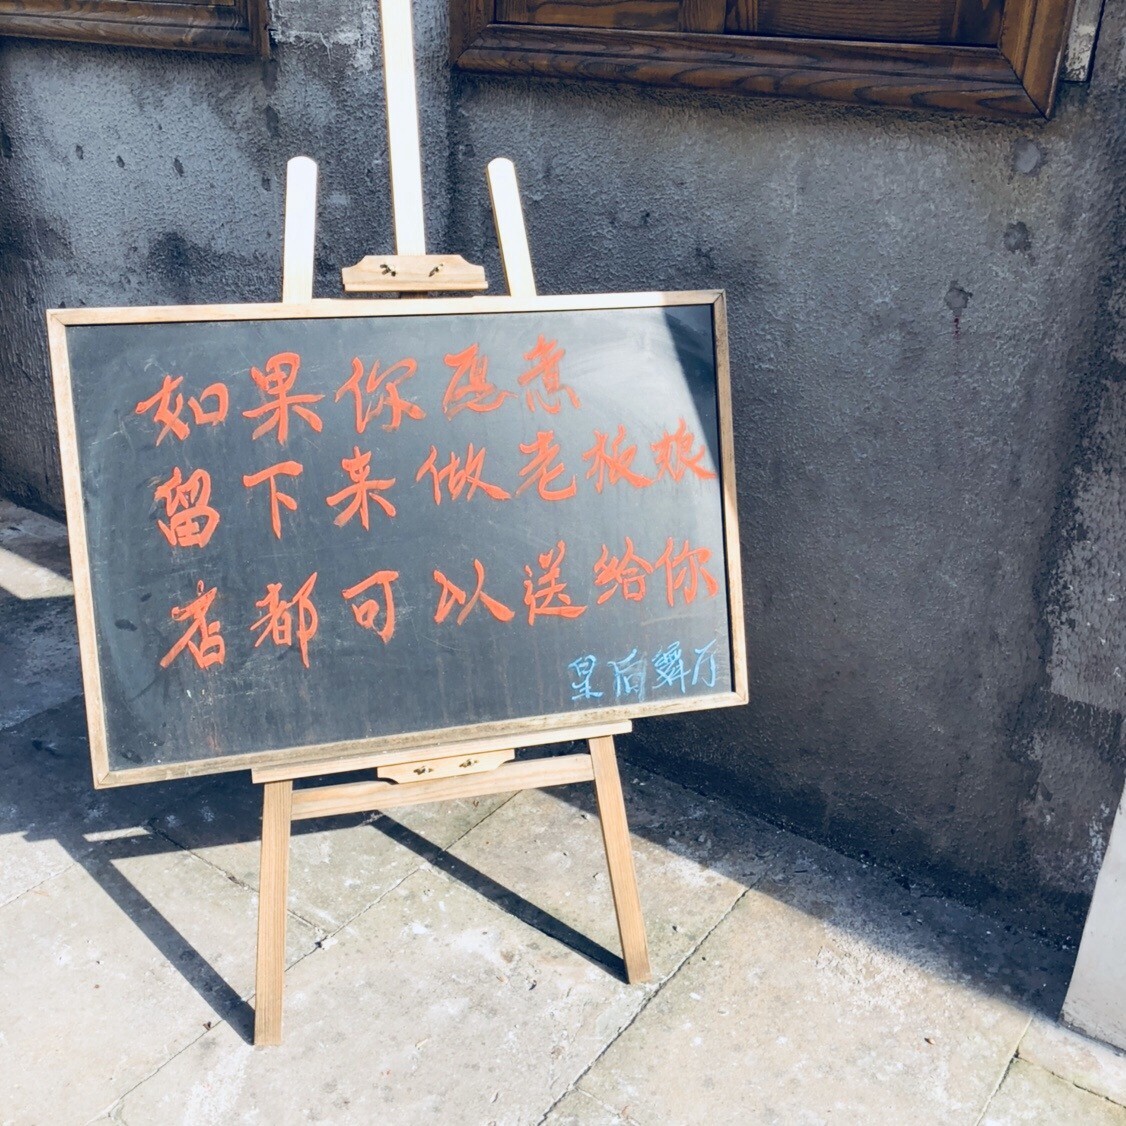 如果你愿意
留下来做老板娘
店都可以送给你
皇后舞厅